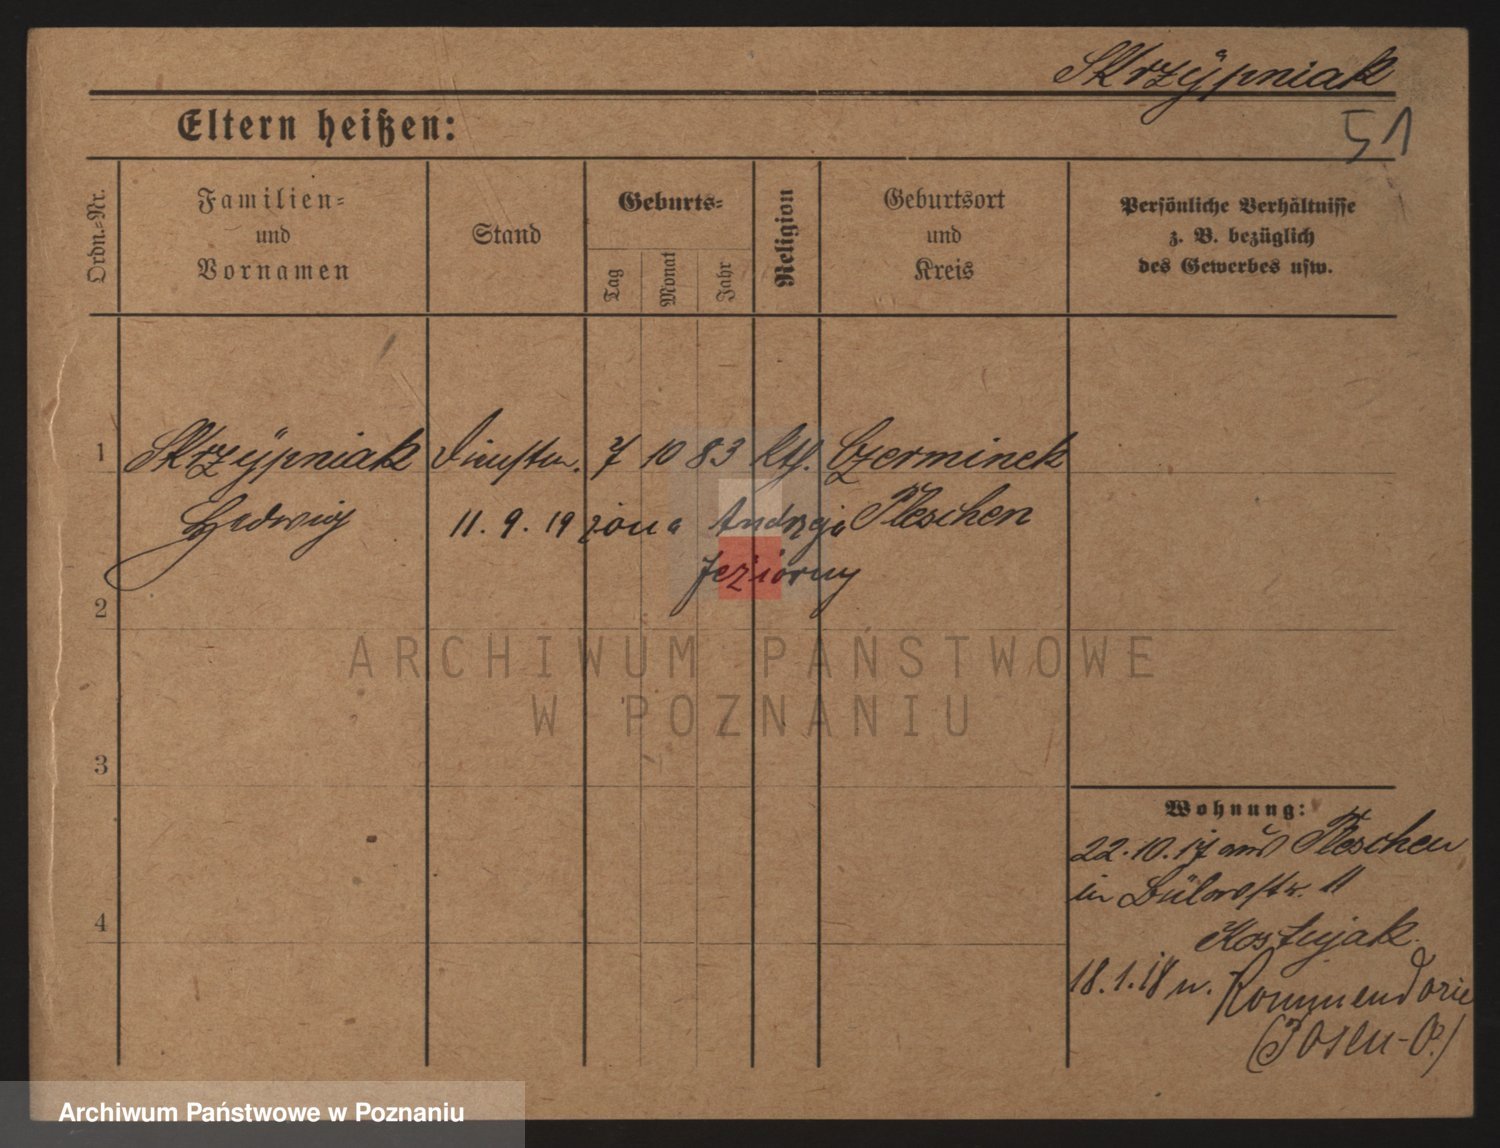 Skrzÿpniak
51
Eltern heißen:
Ordn.-Nr.
Familien- und Vornamen
Stand
Geburts-
Tag
Monat
Jahr
Religion
Geburtsort und Kreis
Persönliche Verhältnisse
z. B. bezüglich
des Gewerbes usw.
1 Skrzÿpniak Dienstm. 7 10 83 kth. Czerminek
Hedwig 11. 9. 19 żona Andrzeja Pleschen
Jeziorny
2
ARCHIWUM PAŃSTWOWE
W POZNANIU
3
Wohnung:
22.10.17 aus Pleschen
in Bülowstr. 11
4
18.1.18 n. Kommenderie
(Posen-O.)
Archiwum Państwowe w Poznaniu